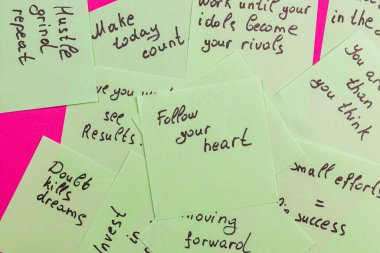 Hustle
grind
repeat
Make
today
count
Work until your
idols become
your rivals
in the
You are
than
you think
ve you w
see
Results.
Follow
your
heart
Doubt
kills
dreams
Invest
in
moving
forward
small efforts
=
success